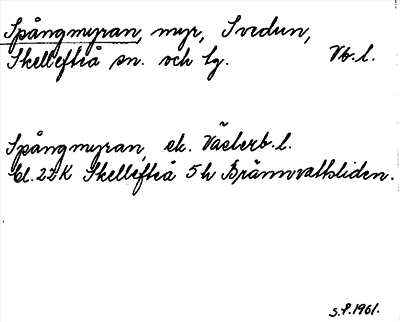 Spångmyran, myr, Svedun,
Skellefteå sn. och lg. Vb.l.
Spångmyran, ek. Västerb.l.
bl. 22K Skellefteå 5h Brännvattsliden.
S.P.1961.